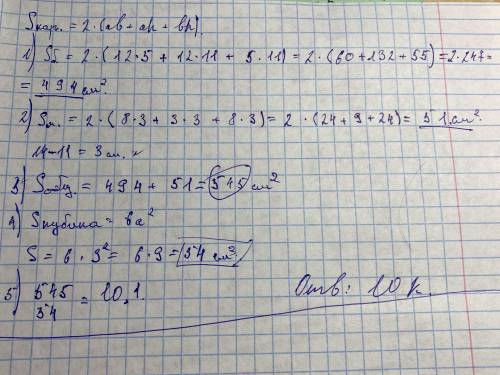 Sкар. = 2·(ab + ah + bh).
1) SБ = 2·(12·5 + 12·11 + 5·11) = 2·(60+132+55) = 2·247=
= 494 см².
2) Sм. = 2·(8·3 + 3·3 + 8·3) = 2·(24+9+24) = 51 см².
14-11 = 3 см.
3) Sобщ. = 494 + 51 = 545 см²
4) Sкубика = 6a²
S = 6·3² = 6·9 = 54 см².
5) 545/54 = 10,1.
Отв: 10 к.